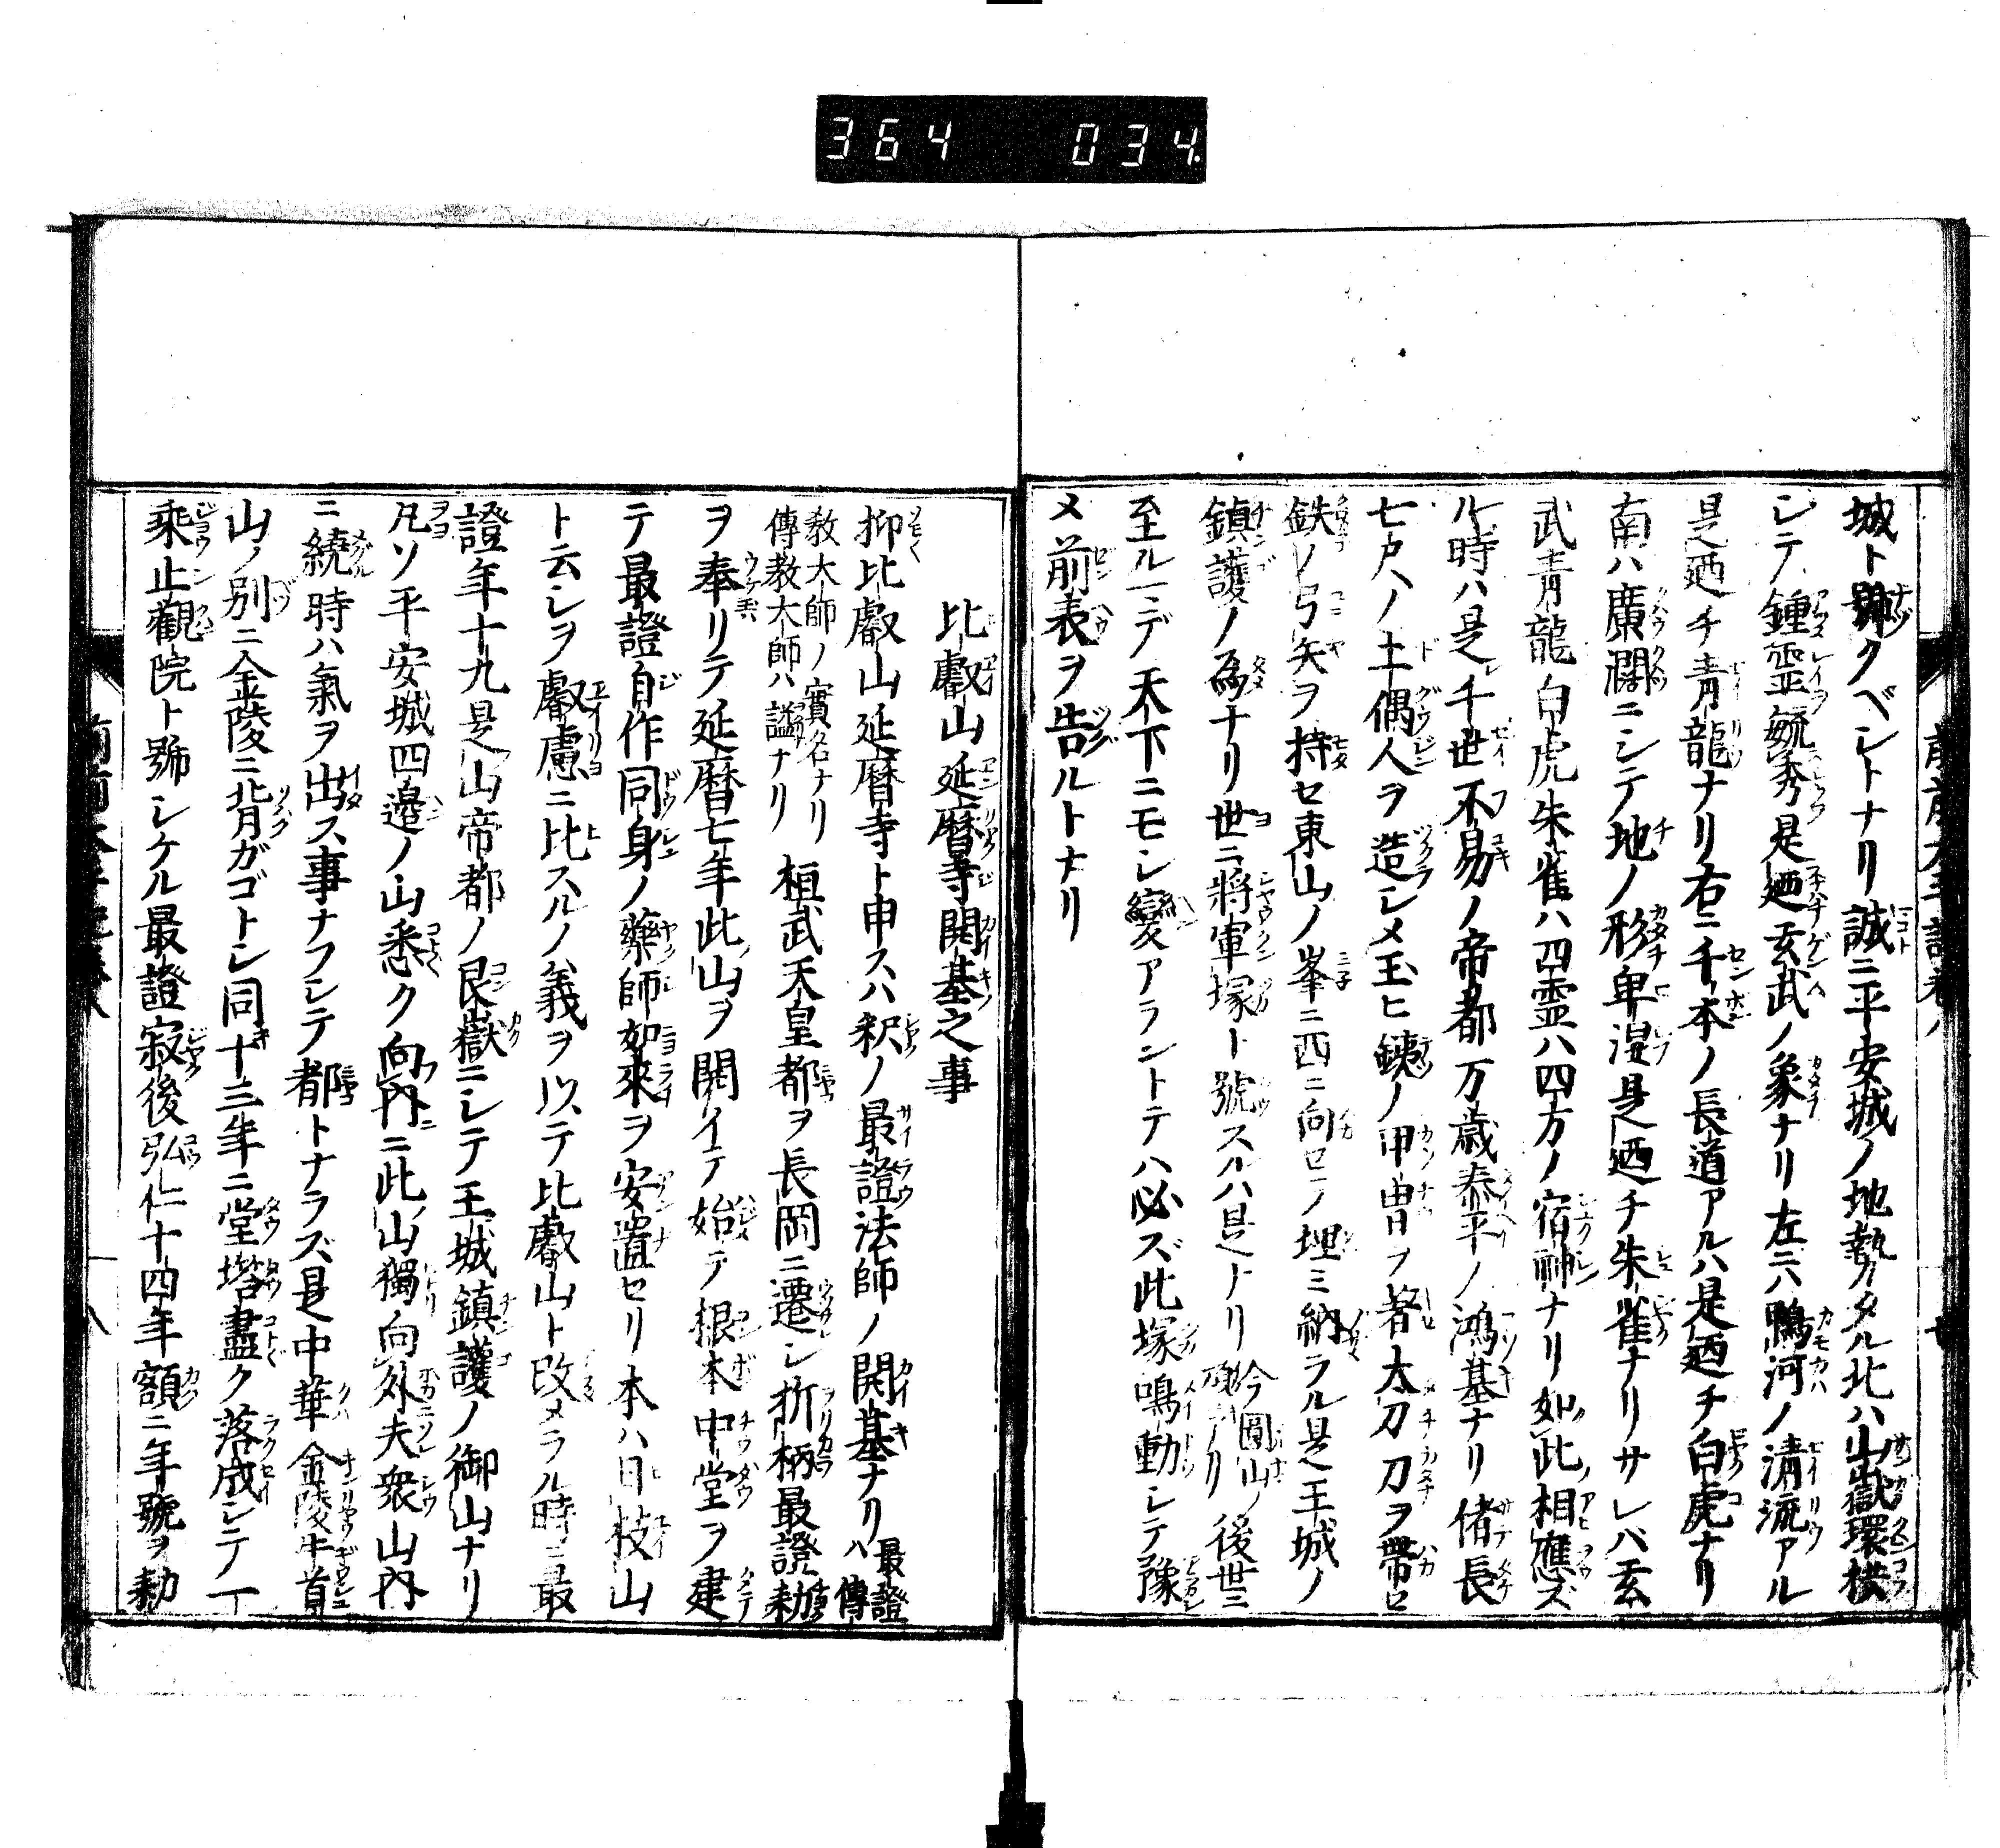 364 034
城ト號クベシトナリ誠ニ平安城ノ地勢タル北ハ山嶽環拱
シテ鍾霊毓秀是廼玄武ノ象ナリ左ニハ鴨河ノ清流アル
是廼チ青龍ナリ右ニ千本ノ長道アルハ是廼チ白虎ナリ
南ハ廣濶ニシテ地ノ形卑湿是廼チ朱雀ナリサレバ玄
武青龍白虎朱雀ハ四霊八四方ノ宿神ナリ如此相應ズ
ル時ハ是千世不易ノ帝都万歳泰平ノ鴻基ナリ偖長
七尺ノ土偶人ヲ造シメ玉ヒ銕ノ甲冑ヲ著太刀刀ヲ帯セ
鉄ノ弓矢ヲ持セ東山ノ峯ニ西ニ向セテ埋ミ納ラル是王城ノ
鎮護ノ為ナリ世ニ將軍塚ト號スルハ是トナリ今圓山ノ後世ニ
至ルマデ天下ニモシ變アラントテハ必ズ此塚鳴動シテ豫
メ前表ヲ告ルトナリ
比叡山延暦寺開基之事
抑比叡山延暦寺ト申スハ釈ノ最證法師ノ開基ナリ最證ハ傳
教大師ノ實名ナリ傳教大師ハ諡ナリ桓武天皇都ヲ長岡ニ遷シ折柄最證勅
ヲ奉リテ延暦七年此山ヲ開イテ始テ根本中堂ヲ建
テ最證自作同身ノ藥師如來ヲ安置セリ本ハ日枝山
ト云シヲ叡慮ニ比スルノ義ヲ以テ比叡山ト改メラル時ニ最
證年十九是山帝都ノ艮嶽ニシテ王城鎮護ノ御山ナリ
凡ソ平安城四邉ノ山悉ク向内ニ此山獨向外夫衆山内
ニ繞時ハ氣ヲ出ス事ナフシテ都トナラズ是中華金陵牛首
山ノ別ニ金陵ニ背ガゴトシ同十三年ニ堂塔盡ク落成シテ一
乘止觀院ト號シケル最證寂後弘仁十四年額ニ年號ヲ勅